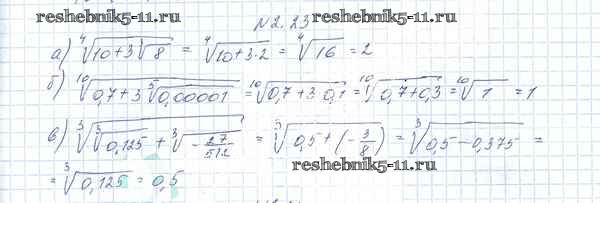 reshebnik5-11.ru
№2.23
reshebnik5-11.ru
а) ⁴√(10+3∛8) = ⁴√(10+3·2) = ⁴√16 = 2
б) ¹⁰√(0,7+3⁵√0,00001) = ¹⁰√(0,7+3·0,1) = ¹⁰√(0,7+0,3) = ¹⁰√1 = 1
в) ∛(∛0,125 + ∛(-27/512)) = ∛(0,5+(-3/8)) = ∛(0,5-0,375) =
reshebnik5-11.ru
= ∛0,125 = 0,5